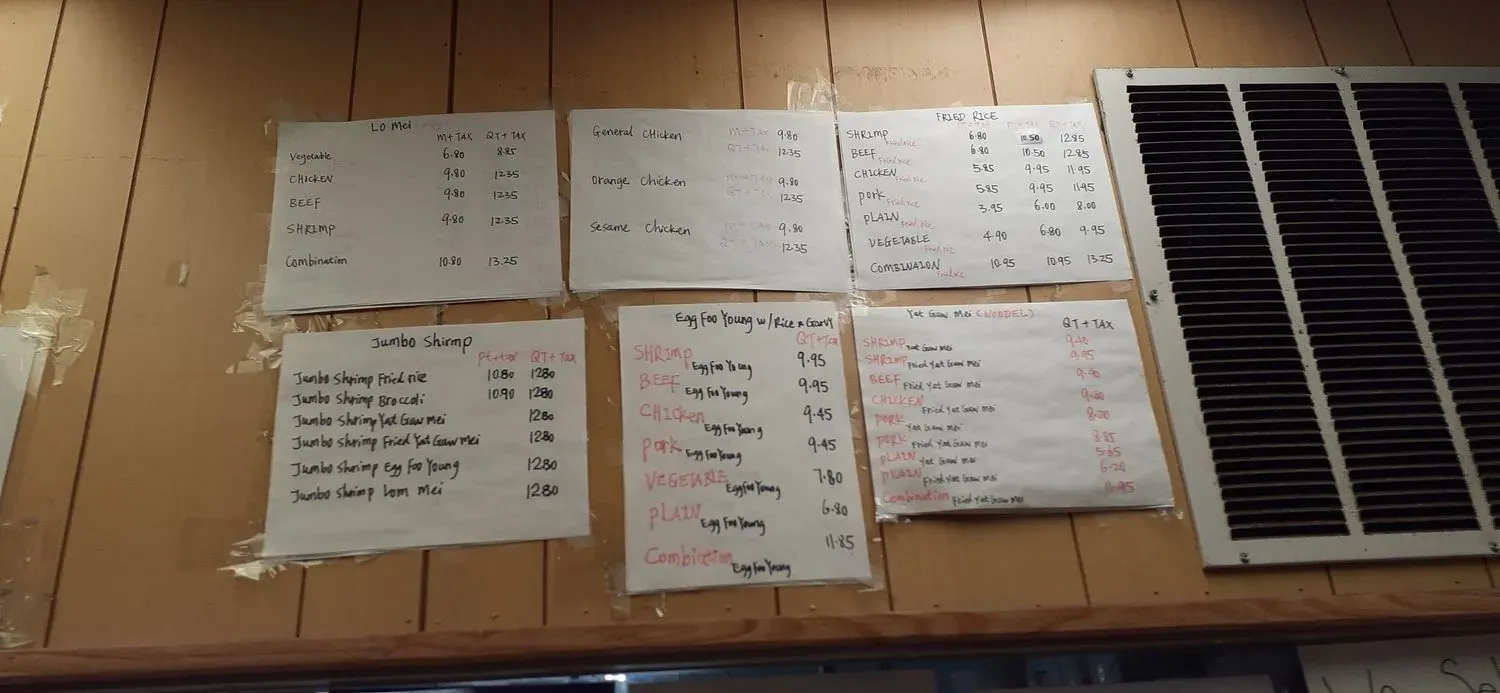 Lo Mei
M+TAX QT+TAX
Vegetable 6.80 8.85
CHICKEN 9.80 12.35
BEEF 9.80 12.35
SHRIMP 9.80 12.35
Combination 10.80 13.25
General CHicken M+TAX 9.80
QT+TAX 12.35
Orange Chicken M+TAX 9.80
QT+TAX 12.35
Sesame Chicken M+TAX 9.80
QT+TAX 12.35
FRIED RICE
M+TAX QT+TAX
SHRIMP Fried rice 6.80 10.50 12.85
BEEF Fried rice 6.80 10.50 12.85
CHICKEN Fried rice 5.85 9.95 11.95
pork Fried rice 5.85 9.95 11.95
pLAIN Fried rice 3.95 6.00 8.00
VEGETABLE Fried rice 4.90 6.80 9.95
COMBINAION Fried rice 10.95 10.95 13.25
Jumbo Shirmp
Pt+tax QT+TAX
Jumbo Shrimp Fried rice 10.80 12.80
Jumbo Shrimp Broccoli 10.90 12.80
Jumbo Shrimp Yat Gaw mei 12.80
Jumbo shrimp Fried Yat Gaw mei 12.80
Jumbo Shrimp Egg Foo Young 12.80
Jumbo Shrimp Lom mei 12.80
Egg Foo Young w/Rice n Garvy
QT+TAX
SHRImp Egg Foo Young 9.95
BEEF Egg Foo Young 9.95
CHIcken Egg Foo Young 9.45
pork Egg Foo Young 9.45
VEGETABLE Egg Foo Young 7.80
pLAIN Egg Foo Young 6.80
Combiation Egg Foo Young 11.85
Yat Gaw Mei (NOODEL)
QT+TAX
SHRIMP Yat Gaw mei 9.40
SHRIMP Fried Yat Gaw mei 9.95
BEEF Fried Yat Gaw mei 9.40
CHICKEN Fried Yat Gaw mei 9.40
PORK Yat Gaw mei 8.20
PORK Fried Yat Gaw mei 8.85
pLAIN Yat Gaw mei 5.65
pLAIN Fried Yat Gaw mei 6.20
Combination Fried Yat Gaw mei 11.95